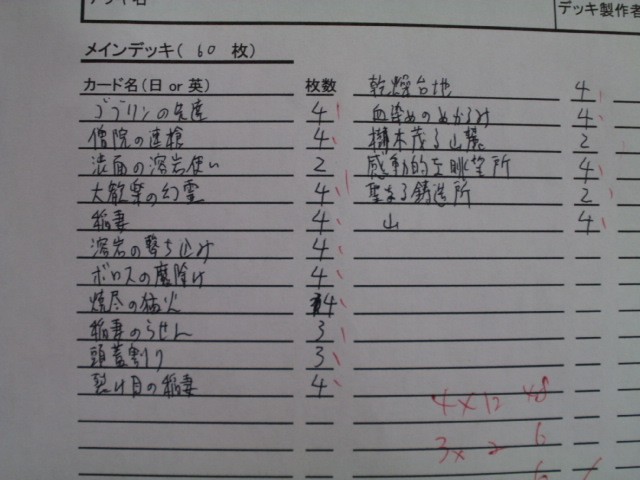 デッキ製作者
メインデッキ( 60 枚)
カード名(日 or 英) 枚数
ゴブリンの先達 4
僧院の速槍 4
渋面の溶岩使い 2
大歓楽の幻霊 4
稲妻 4
溶岩の撃ち込み 4
ボロスの魔除け 4
焼尽の猛火 4
稲妻のらせん 3
頭蓋割り 3
裂け目の稲妻 4
乾燥台地 4
血染めのぬかるみ 4
樹木茂る山麓 2
感動的な眺望所 4
聖なる鋳造所 2
山 4
4×12 48
3× 2 6
6